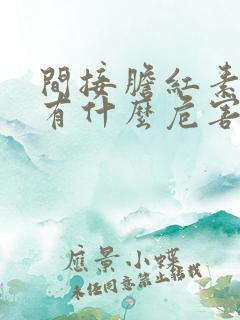 間接膽紅素
有什麼危害
應景小蝶
未經同意禁止轉載